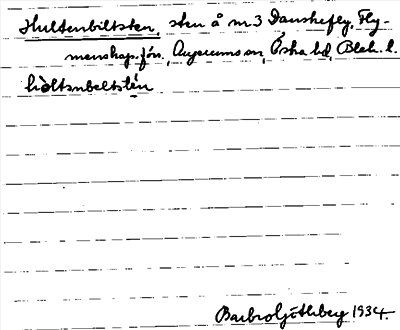 Hultenbiltsten, sten å nr 3 Danskefly, Fly-
menskap. fsn, Augerums sn, Östra hd, Blek. l.
hòltənbeltstén
Barbro Götlberg 1934.